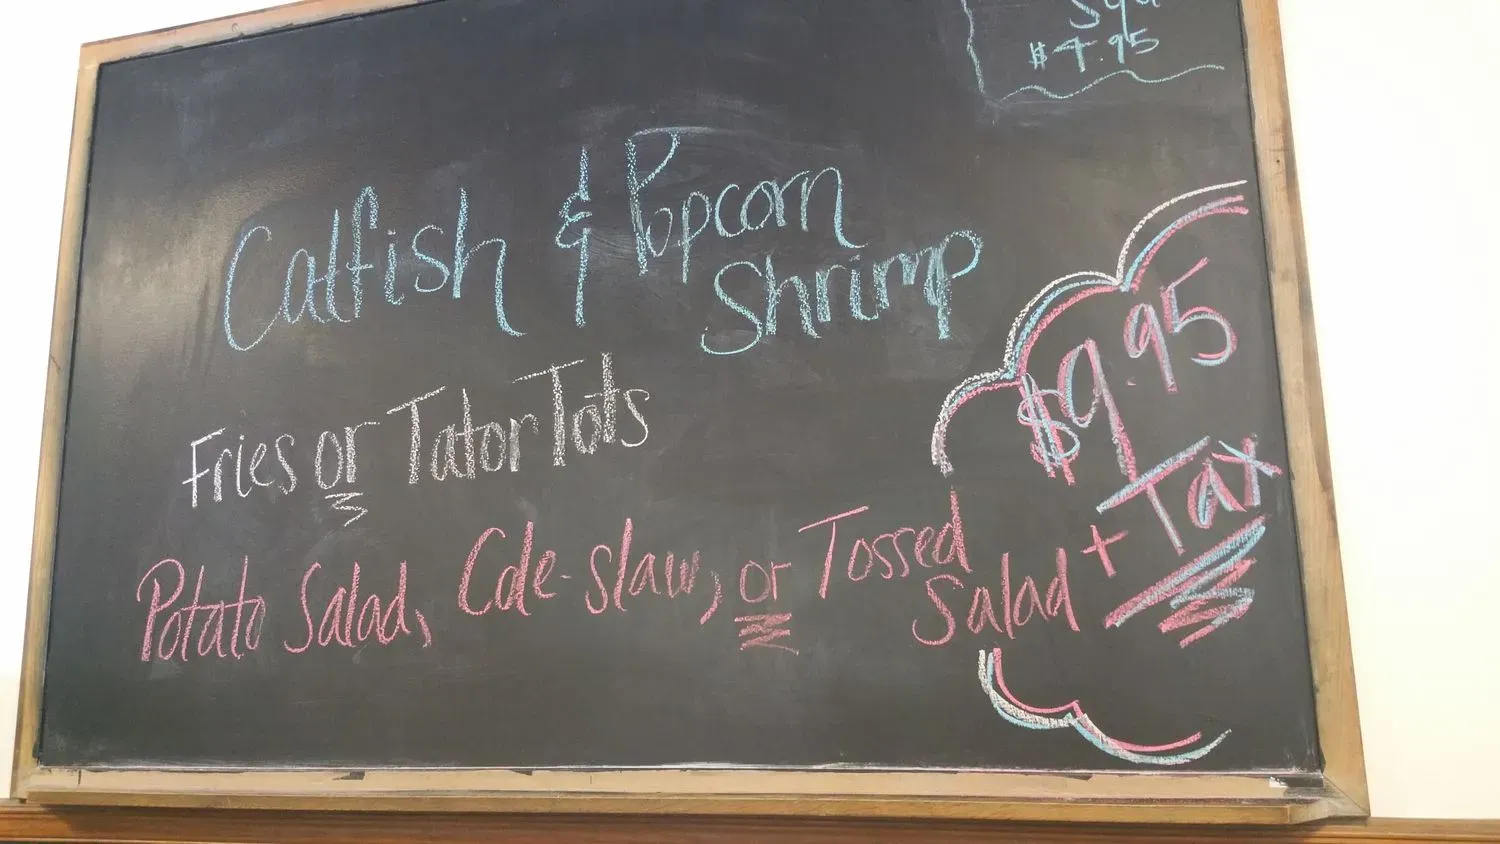 $4.95
Catfish & Popcorn
Shrimp
$9.95
+ Tax
Fries or Tator Tots
Potato Salad, Cole-slaw, or Tossed
Salad